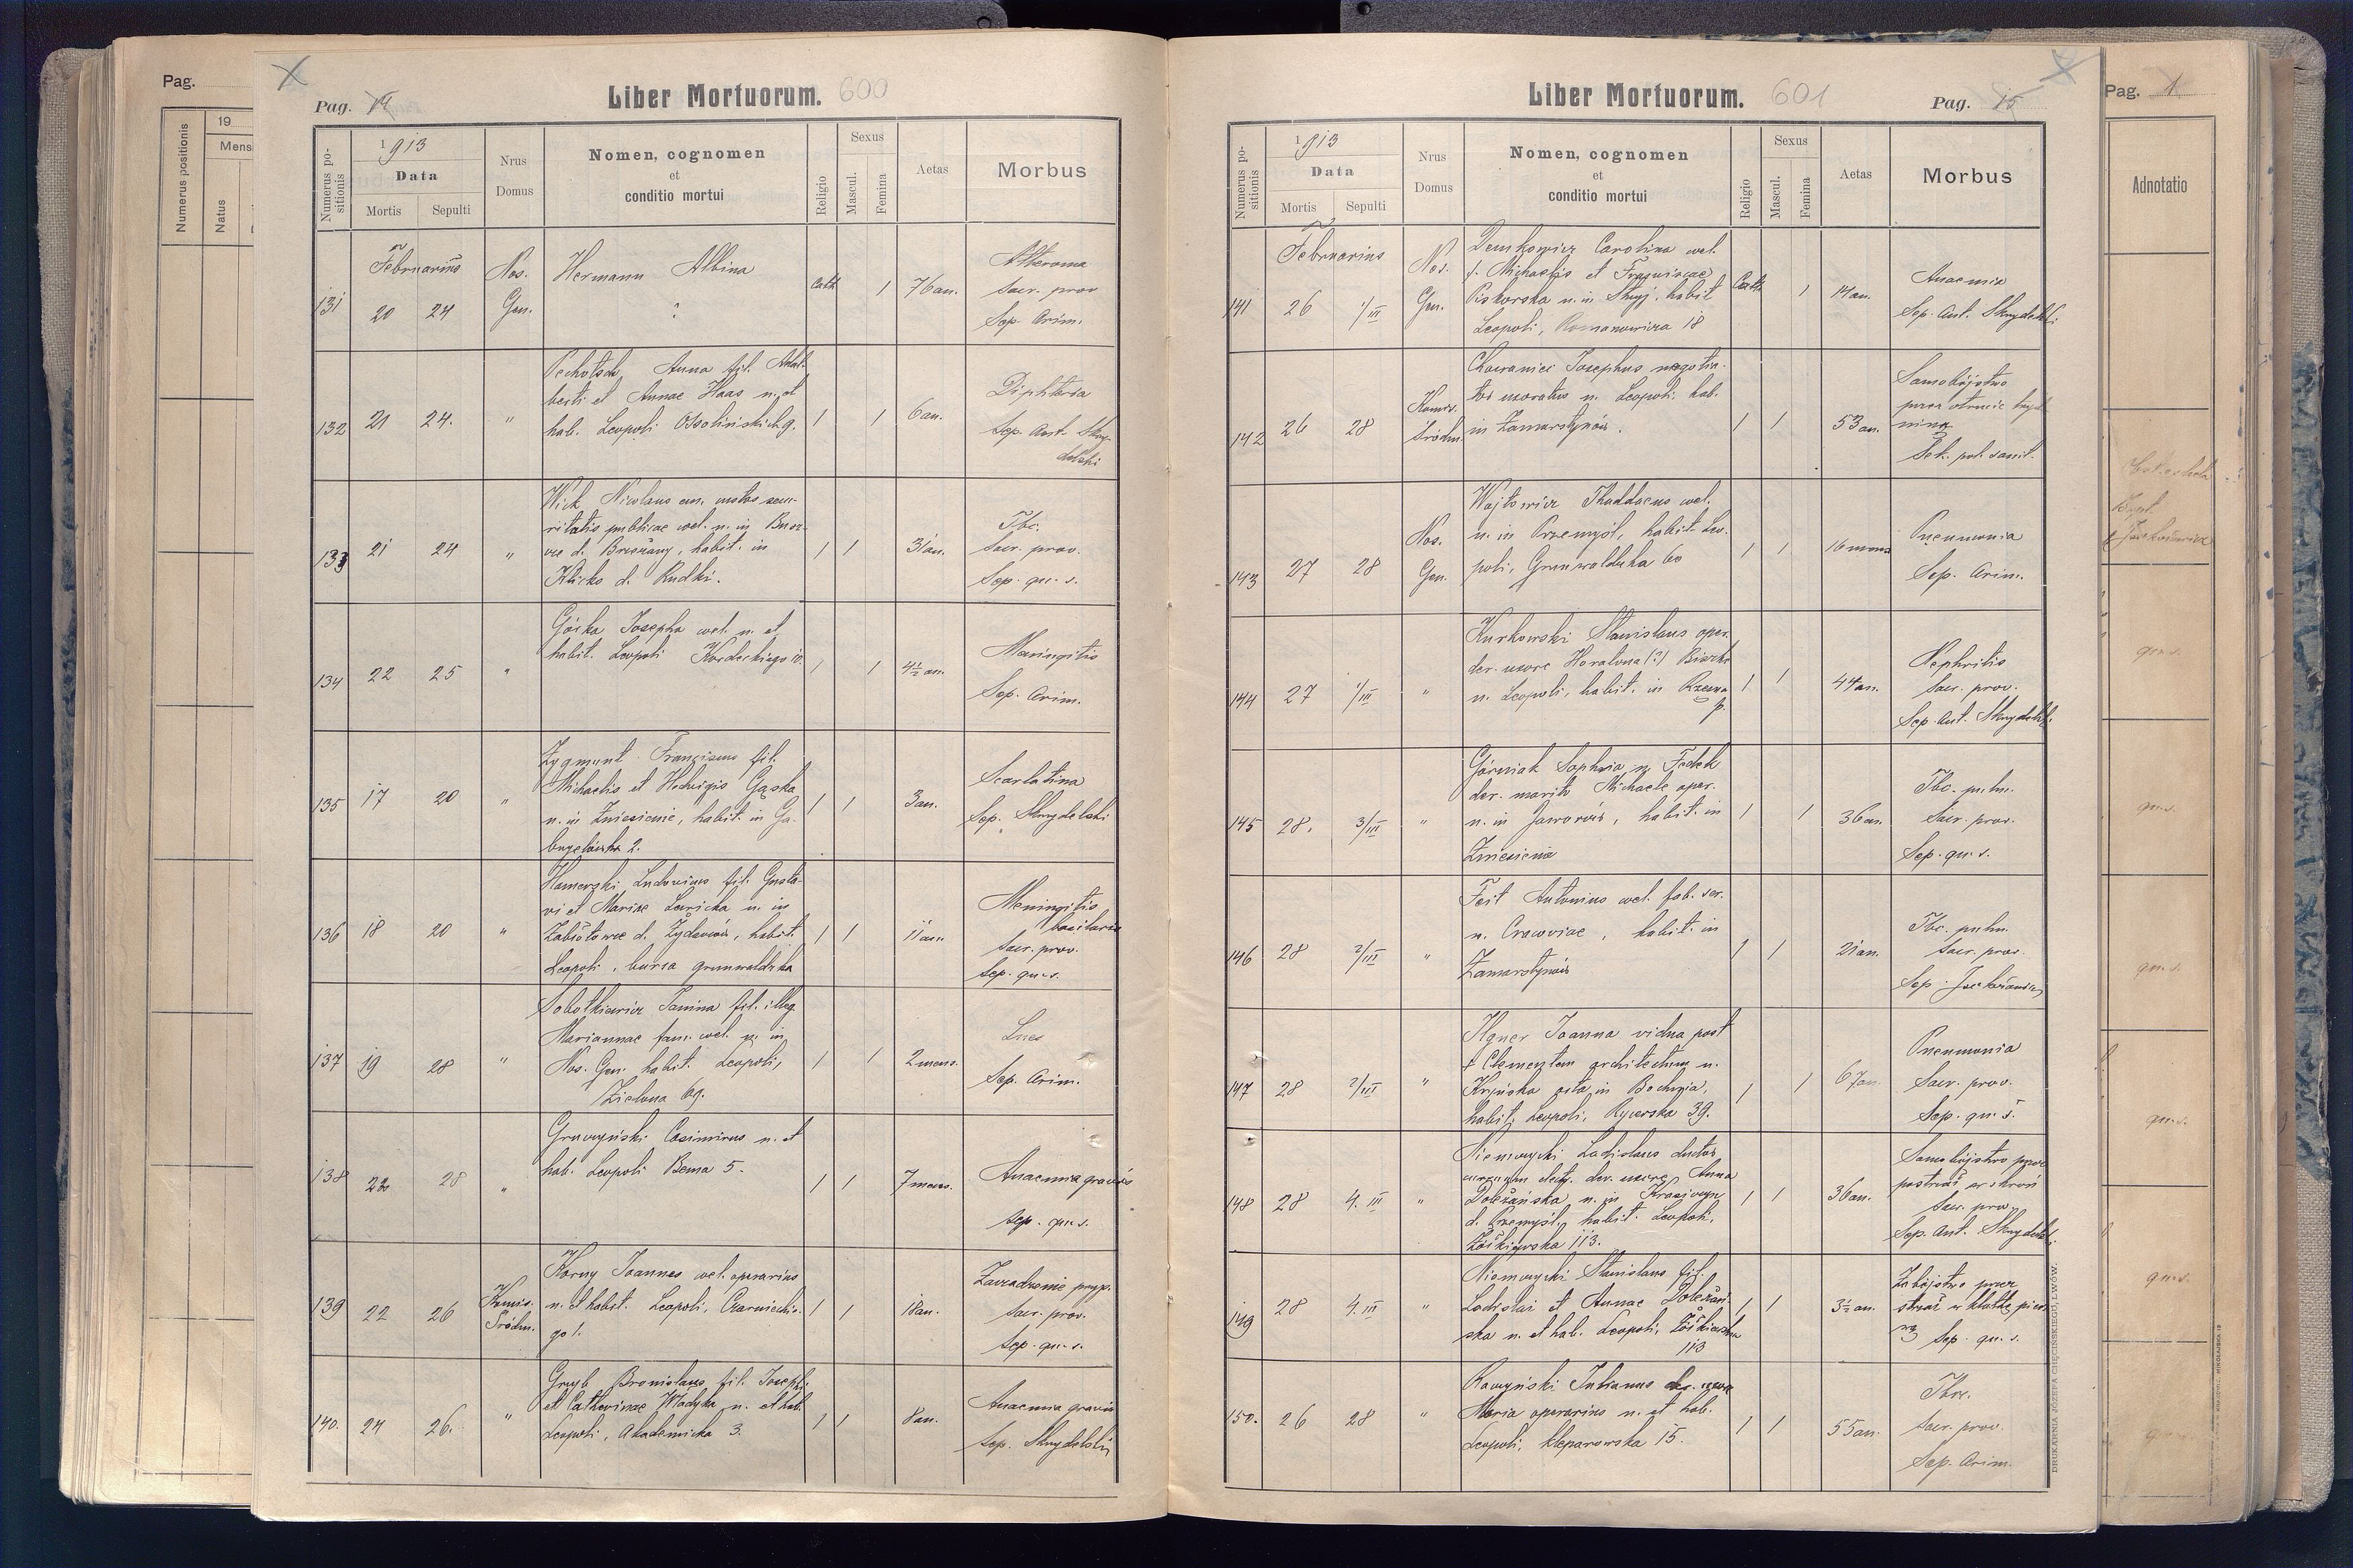 Pag.
Numerus positionis
19
Mens
Natus
Pag. 14
Liber Mortuorum. 600
Numerus positionis
1913
Data
Mortis
Sepulti
Nrus
Domus
Nomen, cognomen
et
conditio mortui
Religio
Sexus
Mascul.
Femina
Aetas
Morbus
Februarius
131
20 24
Nos.
Gen.
Hermann Albina
?
Cath
1
76 an.
Atheroma
Sacr. prov
Sep. Arim.
132
21 24.
"
Anna fil. Adal-
berti et Annae Haas n. et
hab. Leopoli Ossolińskich 9.
1 1
6 an.
Diphteria
Sep. Ant. Skry-
delski
133
21 24
"
Wick Nicolaus em. custos secu-
ritatis publicae cael. n. in
d. Brzeżany, habit. in
d. Rudki.
1 1
31 an.
Tbc.
Sacr. prov.
Sep. qu. s.
134
22 25
"
Górka Josepha cael. n. et
habit. Leopoli Kordeckiego
1 1
4½ an.
Meningitis
Sep. Arim.
135
17 20
"
Zygmunt Franciscus fil.
Michaelis et Hedvigis Gąska
n. in Zniesienie, habit. in Ga-
2.
1 1
3 an.
Scarlatina
Sep. Skrydelski
136
18 20
"
Hamerski Ludovicus fil. Gusta-
vi et Mariae n. in
d. Żydaczów, habit.
Leopoli, bursa grunwaldzka
1 1
11 an.
Meningitis
basilaris
Sacr. prov.
Sep. qu. s.
137
19 28
"
Sobotkiewicz Janina fil. illeg.
Mariannae fam. cael. n. in
Nos. Gen. habit. Leopoli,
Zielona 69.
1 1
2 mens.
Lues
Sep. Arim.
138
28
"
Gruczyński Casimirus n. et
hab. Leopoli Bema 5.
1 1
7 mens.
Anaemia gravis
Sep. qu. s.
139
22 26
Komis.
Śródm.
Korny Joannes cael. operarius
n. et habit. Leopoli, Czarnieckie-
go 1.
1 1
18 an.
Zaczadzenie przyp.
Sacr. prov.
Sep. qu. s.
140.
24 26.
"
Gryb Bronislaus fil. Josephi
et Catherinae Władyka n. et hab.
Leopoli, Akademicka 3.
1 1
8 an.
Anaemia gravis
Sep. Skrydelski
Liber Mortuorum. 601
Pag. 15
Numerus positionis
1913
Data
Mortis
Sepulti
Nrus
Domus
Nomen, cognomen
et
conditio mortui
Religio
Sexus
Mascul.
Femina
Aetas
Morbus
Februarius
141
26 1/III
Nos.
Gen.
Demkowicz Carolina cael.
f. Michaelis et Franciscae
Piskorska n. in Stryj, habit
Leopoli, Romanowicza 18
Cath
1
14 an.
Anaemia
Sep. Ant. Skrydelski
142
26 28
Komis.
Śródm.
Chowaniec Josephus negotia-
tor uxoratus n. Leopoli. hab.
in Zamarstynów.
1 1
53 an.
Samobójstwo
przez otrucie
Sek. pol. sanit.
143
27 28
Nos.
Gen.
Wojtowicz Thaddaeus cael.
n. in Przemyśl, habit. Leo-
poli, Grunwaldzka 60
1 1
16 mens
Pneumonia
Sep. Arim.
144
27 1/III
"
Kurkowski Stanislaus oper.
der. uxore Horalona (?)
n. Leopoli, habit. in Rzesna
p.
1 1
44 an.
Nephritis
Sacr. prov.
Sep. Ant. Skrydelski
145
28. 3/III
"
Górniak Sophia n. Fedek
der. marito Michaele oper.
n. in Jaworów, habit. in
Zniesienie
1 1
36 an.
Tbc. pulm.
Sacr. prov.
Sep. qu. s.
146
28 2/III
"
Feit Antonius cael. fab. ser.
n. Cracoviae, habit. in
Zamarstynów
1 1
21 an.
Tbc. pulm.
Sacr. prov.
Sep.
147
28 2/III
"
Ilgner Joanna vidua post
† Clementem architectum n.
Kryńska orta in Bochnia,
habit. Leopoli, Rycerska 39.
1 1
67 an.
Pneumonia
Sacr. prov.
Sep. qu. s.
148
28 4. III
"
Niemczycki Ladislaus ductor
currum electr. der. uxore Anna
Doleżańska n. in Krasiczyn
d. Przemyśl, habit. Leopoli,
Żółkiewska 113.
1 1
36 an.
Samobójstwo przez
postrzał w skroń
Sacr. prov.
Sep. Ant. Skrydelski
149
28 4. III
"
Niemczycki Stanislaus fil.
Ladislai et Annae Doleżań-
ska n. et hab. Leopoli, Żółkiewska
113
1 1
3½ an.
Zabójstwo przez
strzał w klatkę piers
Sep. qu. s.
150.
26 28
"
Kaczyński Julianus der. uxore
Maria operarius n. et hab.
Leopoli, Kleparowska 15.
1 1
55 an.
Tbc.
Sacr. prov.
Sep. Arim.
DRUKARNIA JÓZEFA CHĘCIŃSKIEGO, LWÓW.
Pag. 1
Adnotatio
qu. s.
qu. s.
qu. s.
qu. s.
qu. s.